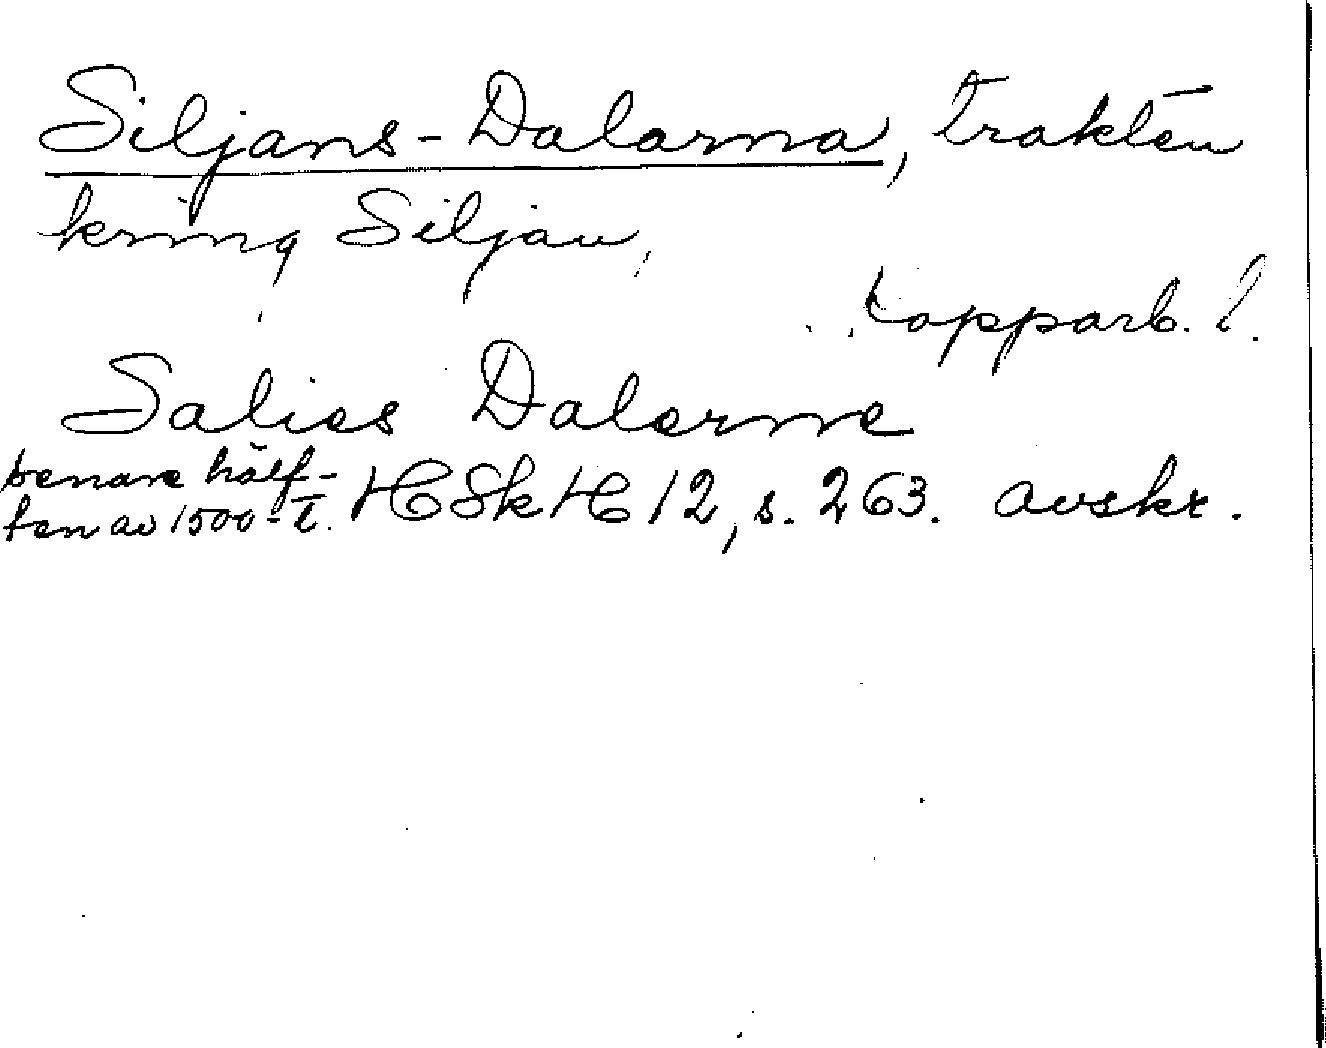 Siljans-Dalarna, trakten
kring Siljan,
Kopparb. l.
Salies Dalerne
senare hälf-
ten av 1500-t. HSkH 12, s. 263. avskr.